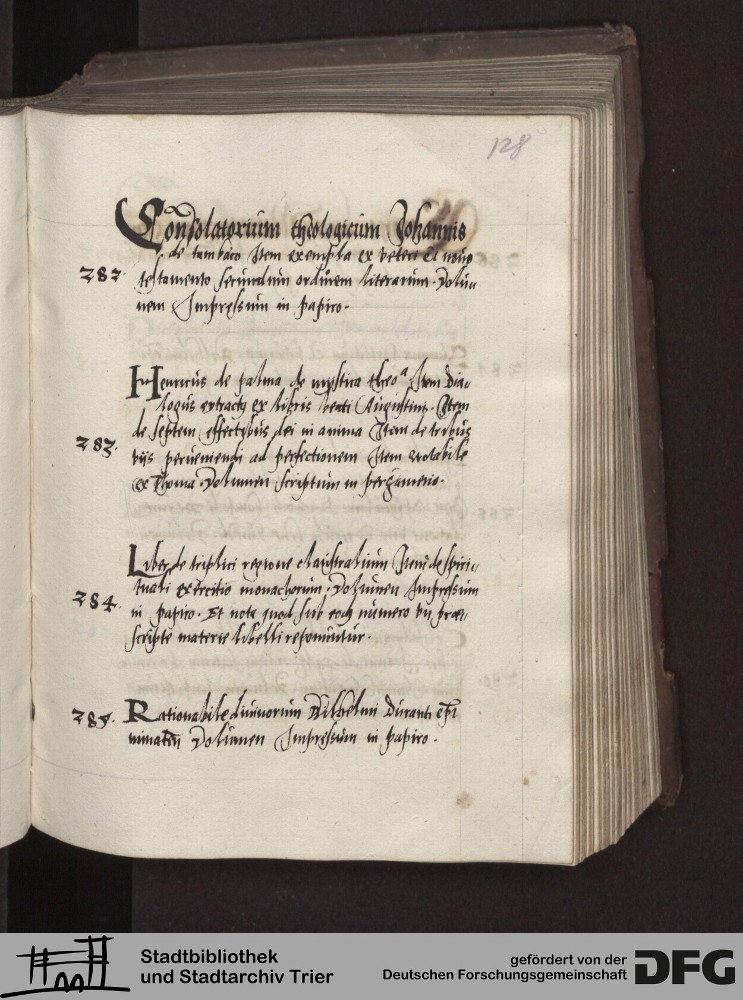 128
Consolatorium theologicum Johannis
de tambaco Item exempla ex veteri et nouo
282 testamento secundum ordinem literarum. Volu=
men Impressum in papiro.
Henricus de palma de mystica theoᵃ. Item Dia=
logus extractus ex libris beati Augustini. Item
de septem effectibus dei in anima Item de tribus
283. viis perueniendi ad perfectionem Item Notabile
ex Thoma. Volumen scriptum in pergameno.
Liber de triplici regione claustralium Item de spiri=
tuali exercitio monachorum. Volumen Impressum
284. in papiro. Et nota quod sub eodem numero bini prae=
scripte materie libelli reponuntur.
285. Rationabile diuinorum Wilhelmi Duranti epi
mimaten Volumen Impressum in papiro.
Stadtbibliothek
und Stadtarchiv Trier
gefördert von der
Deutschen Forschungsgemeinschaft
DFG